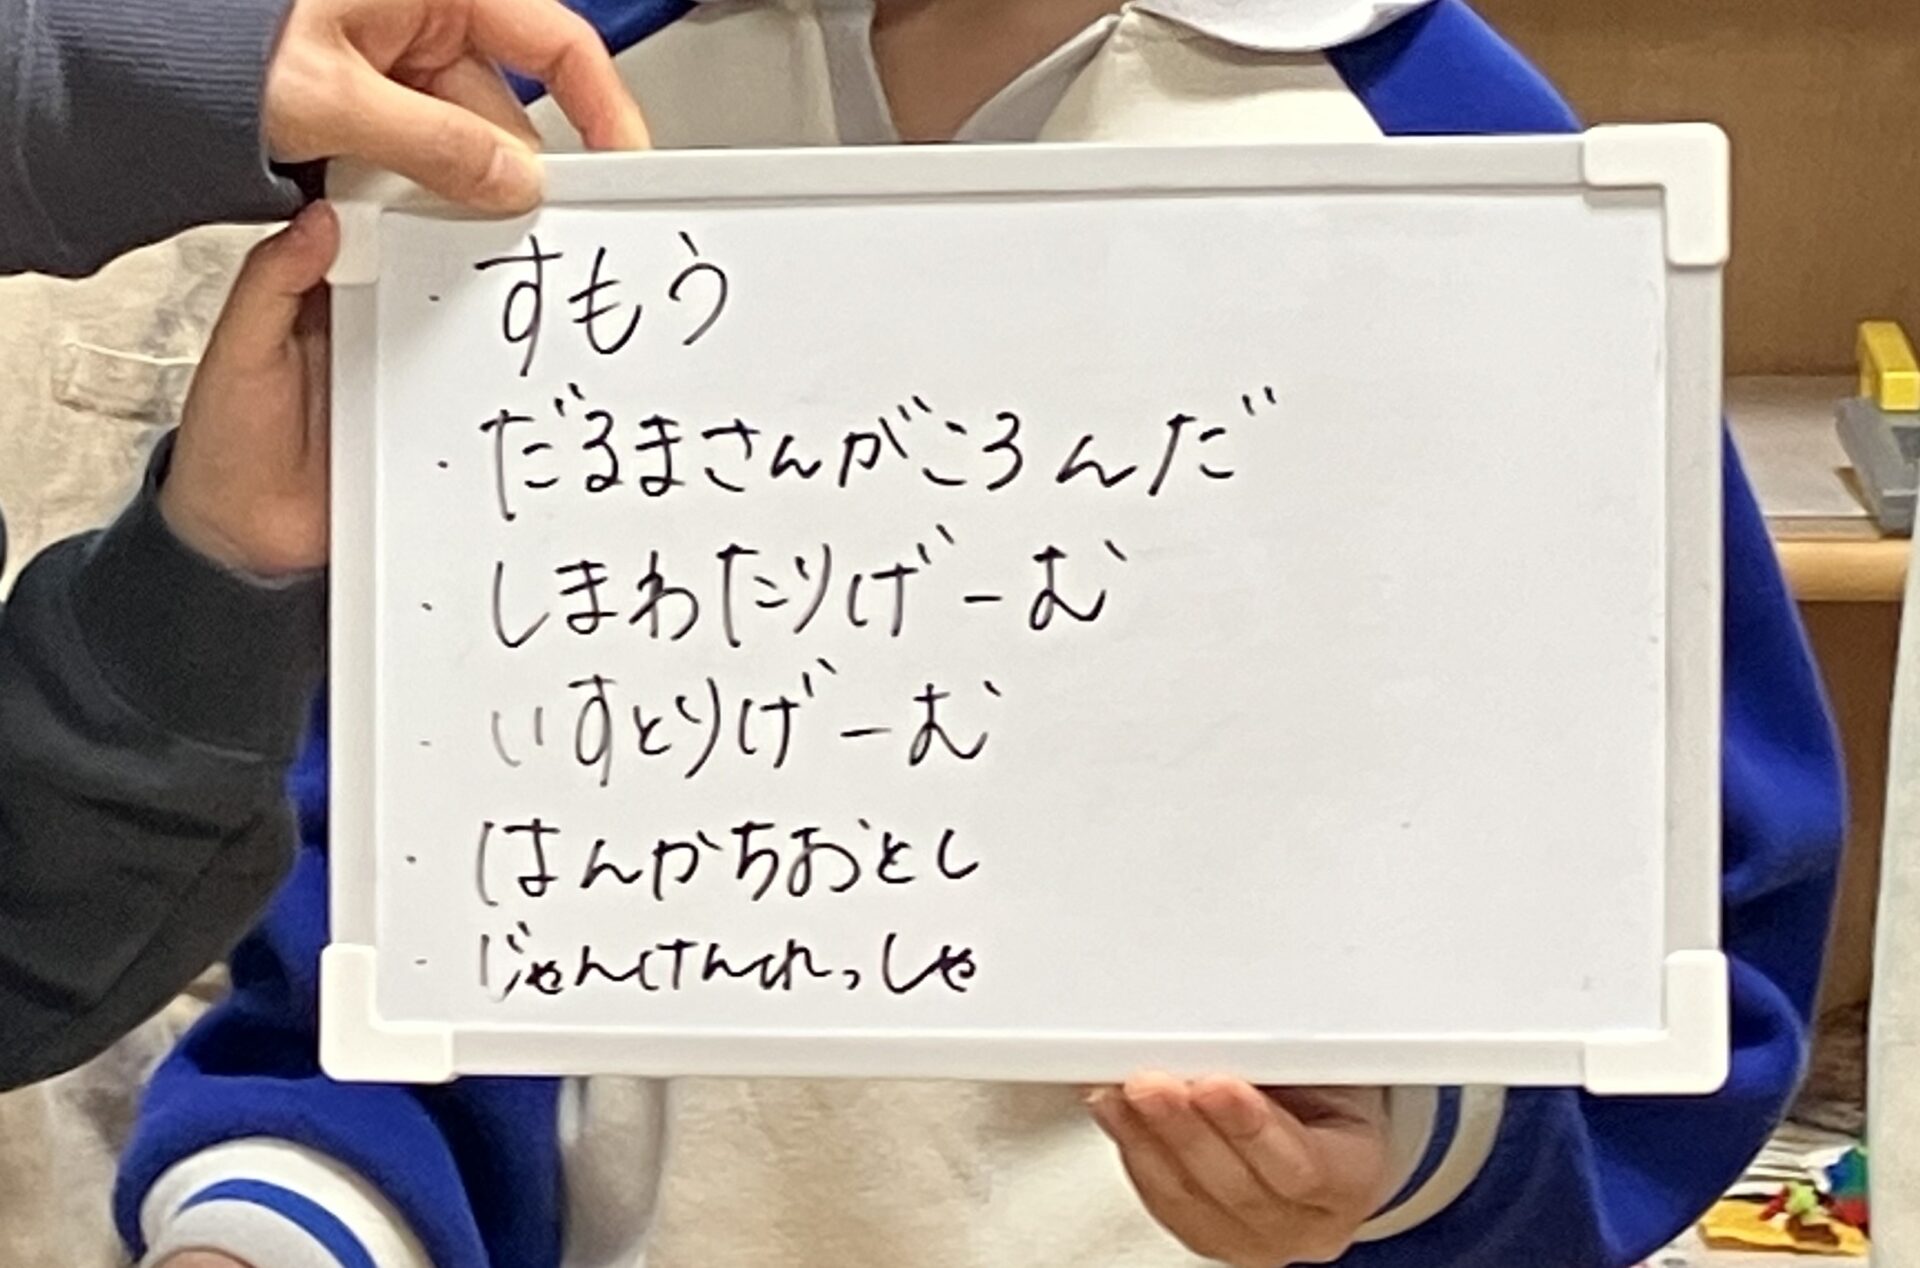 ・すもう
・だるまさんがころんだ
・しまわたりげーむ
・いすとりげーむ
・はんかちおとし
・じゃんけんれっしゃ